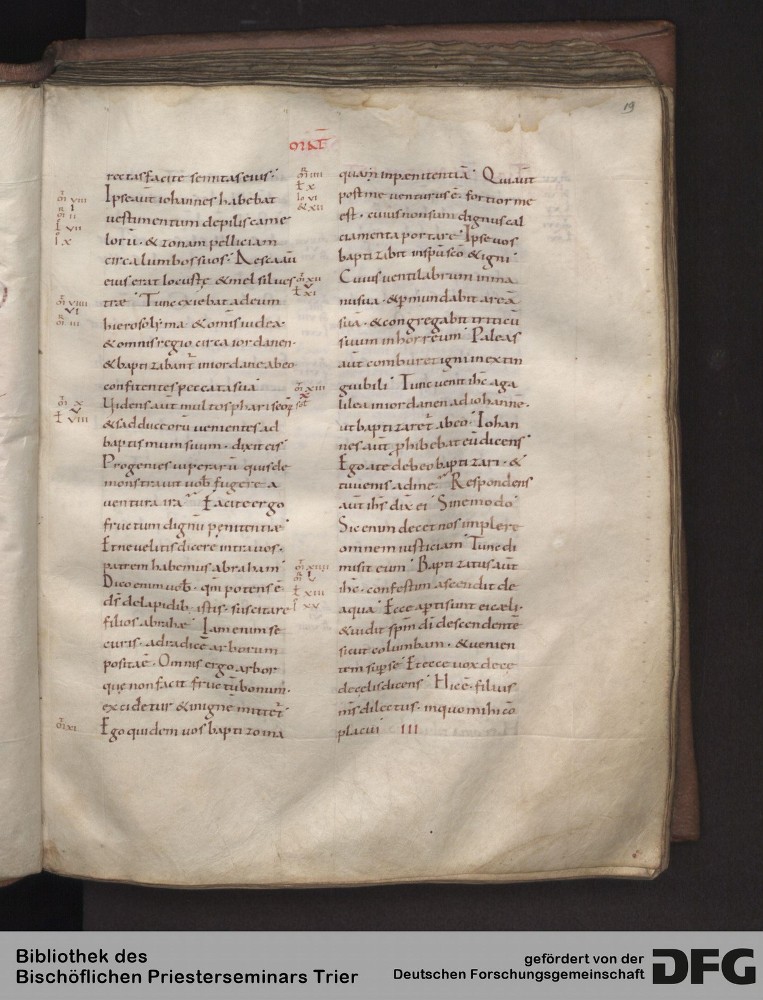 19
MAT
rectas facite semitas eius·
Ipse aut̅ iohannes habebat
uestimentum de pilis came
loru̅· & zonam pelliciam
circa lumbos suos· & esca au̅
eius erat locustę & mel silues
træ· Tunc exiebat ad eum
hierosolyma· & om̅is iudea·
& omnis regio circa iordanen·
& baptizabant̅ in iordane ab eo
confitentes peccata sua
Uidens aut̅ multos phariseoꝝ
& sadduceoru̅ uenientes ad
baptismum suum· dixit eis
Progenies uiperaru̅ quis de
monstrauit uob̅ fugere a
uentura ira· Facite ergo
fructum dignu̅ penitentiæ·
Et ne uelitis dicere intra uos·
patrem habemus abraham
Dico enim uob̅· qm̅ potens e̅
d̅s de lapidib; istis· suscitare
filios abrahæ· Iam enim se
curis· ad radice̅ arborum
posita e̅· Omnis ergo arbor
que non facit fructu̅ bonum·
excidetur & in igne̅ mittet̅
Ego quidem uos baptizo in a
qua in penitentia̅· Qui aut̅
post me uenturus e̅· fortior me
est· cuius non sum dignus cal
ciamenta portare· Ipse uos
baptizabit in sp̅u sc̅o & igni·
Cuius uentilabrum in ma
nu sua· & p̱mundabit area̅
sua̅· & congregabit triticu̅
suum in horreum· Paleas
aut̅ comburet igni inextin
guibili· Tunc uenit ih̅c a ga
lilea in iordanen ad iohanne̅·
ut baptizaret̅ ab eo· Iohan
nes aut̅ p̱hibebat eu̅ dicens·
Ego a te debeo baptizari· &
tu uenis ad me· Respondens
aut̅ ih̅s dix̅ ei· Sine modo·
Sic enim decet nos implere
omnem iusticiam· Tunc di
misit eum· Baptizatus aut̅
ih̅c· confestim ascendit de
aqua· Ecce ap̱ti sunt ei cæli·
& uidit sp̅m d̅i descendente̅
sicut columbam· & uenien
tem sup̱ se· Et ecce uox de ce
de cęlis dicens· Hic e̅· filius
m̅s dilectus· in quo mihi co̅
placui III
Bibliothek des
Bischöflichen Priesterseminars Trier
gefördert von der
Deutschen Forschungsgemeinschaft
DFG